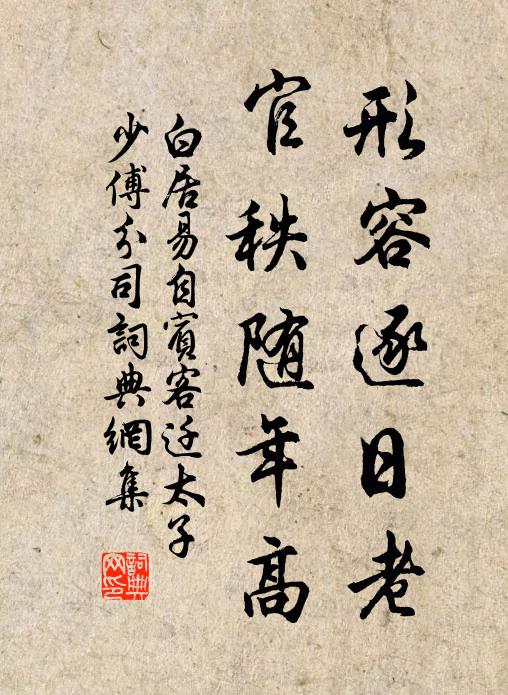 形容逐日老
官秩随年高
白居易自賓客迁太子
少傅分司詞典網集
詞典
网印